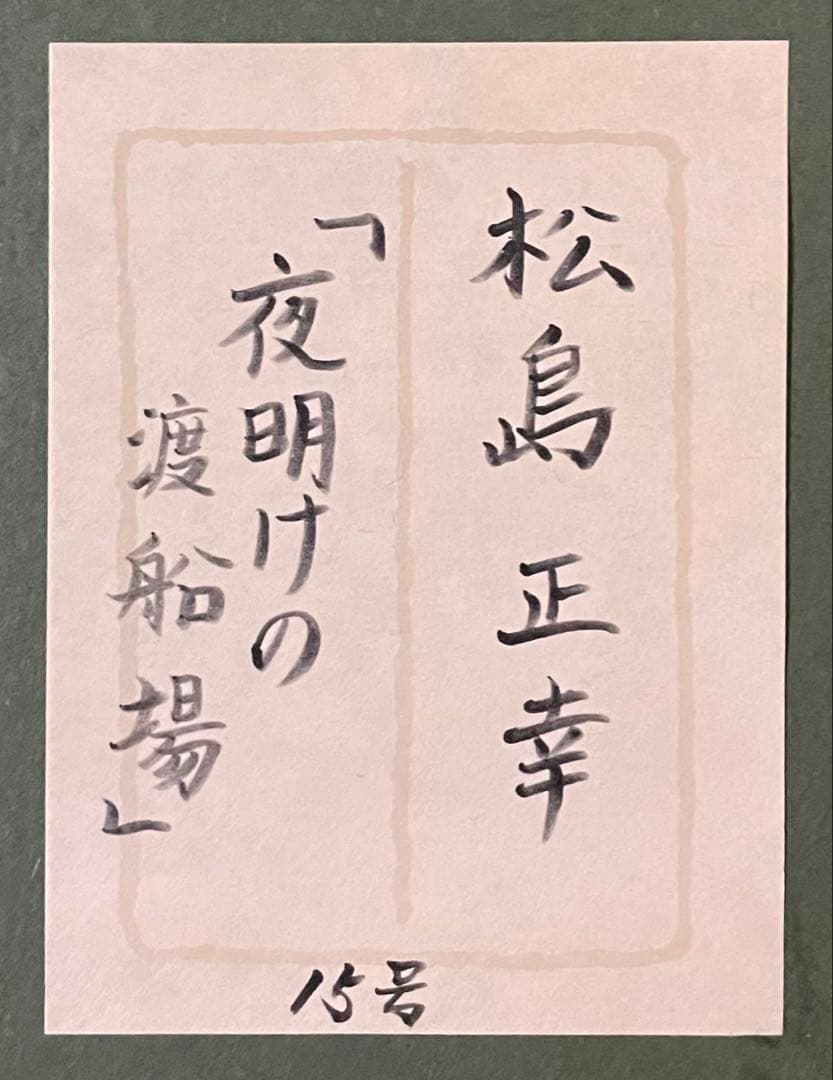 松島正幸
「夜明けの
渡船場」
15号